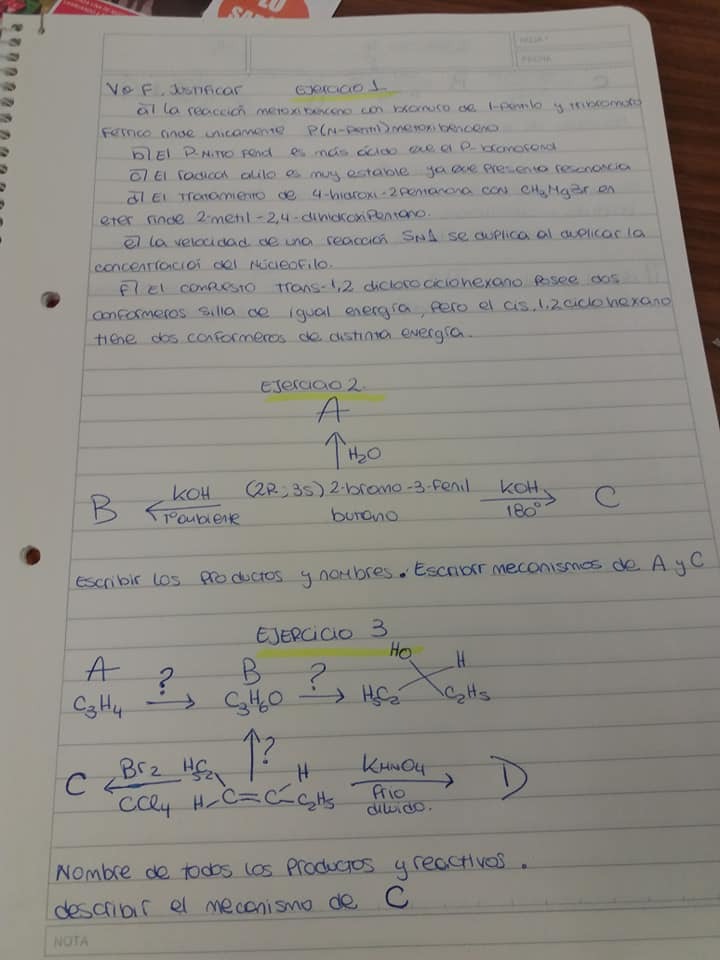 20
FECHA
V o F. Justificar Ejercicio 1
a) la reacción metoxibenceno con bromuro de 1-pentilo y tribromoro
Ferrico rinde unicamente P(N-Pentil)metoxibenceno
b) El P-Nitro fenol es más ácido que el P-bromofenol
c) El radical alilo es muy estable ya que presenta resonancia
d) El Tratamiento de 4-hidroxi-2pentanona con CH3MgBr en
eter rinde 2-metil-2,4-dihidroxiPentano.
e) la velocidad de una reacción SN1 se duplica al duplicar la
concentración del Nucleofilo.
F) El compuesto trans-1,2 diclorociclohexano posee dos
conformeros silla de igual energía, pero el cis.1,2ciclohexano
tiene dos conformeros de distinta energía.
Ejercicio 2.
A
↑ H2O
B ← KOH Tº ambiente (2R;3S) 2-bromo-3-fenil KOH → C
butano 180º
Escribir los productos y nombres. Escribir mecanismos de A y C
EJERCICIO 3
A ? B ? HO H
C3H4 → C3H6O → H5C2 C2H5
↑?
C ← Br2 H5C2 H KHNO4 → D
CCl4 H C=C C2H5 Frio
diluido.
Nombre de todos los productos y reactivos.
describir el mecanismo de C
NOTA